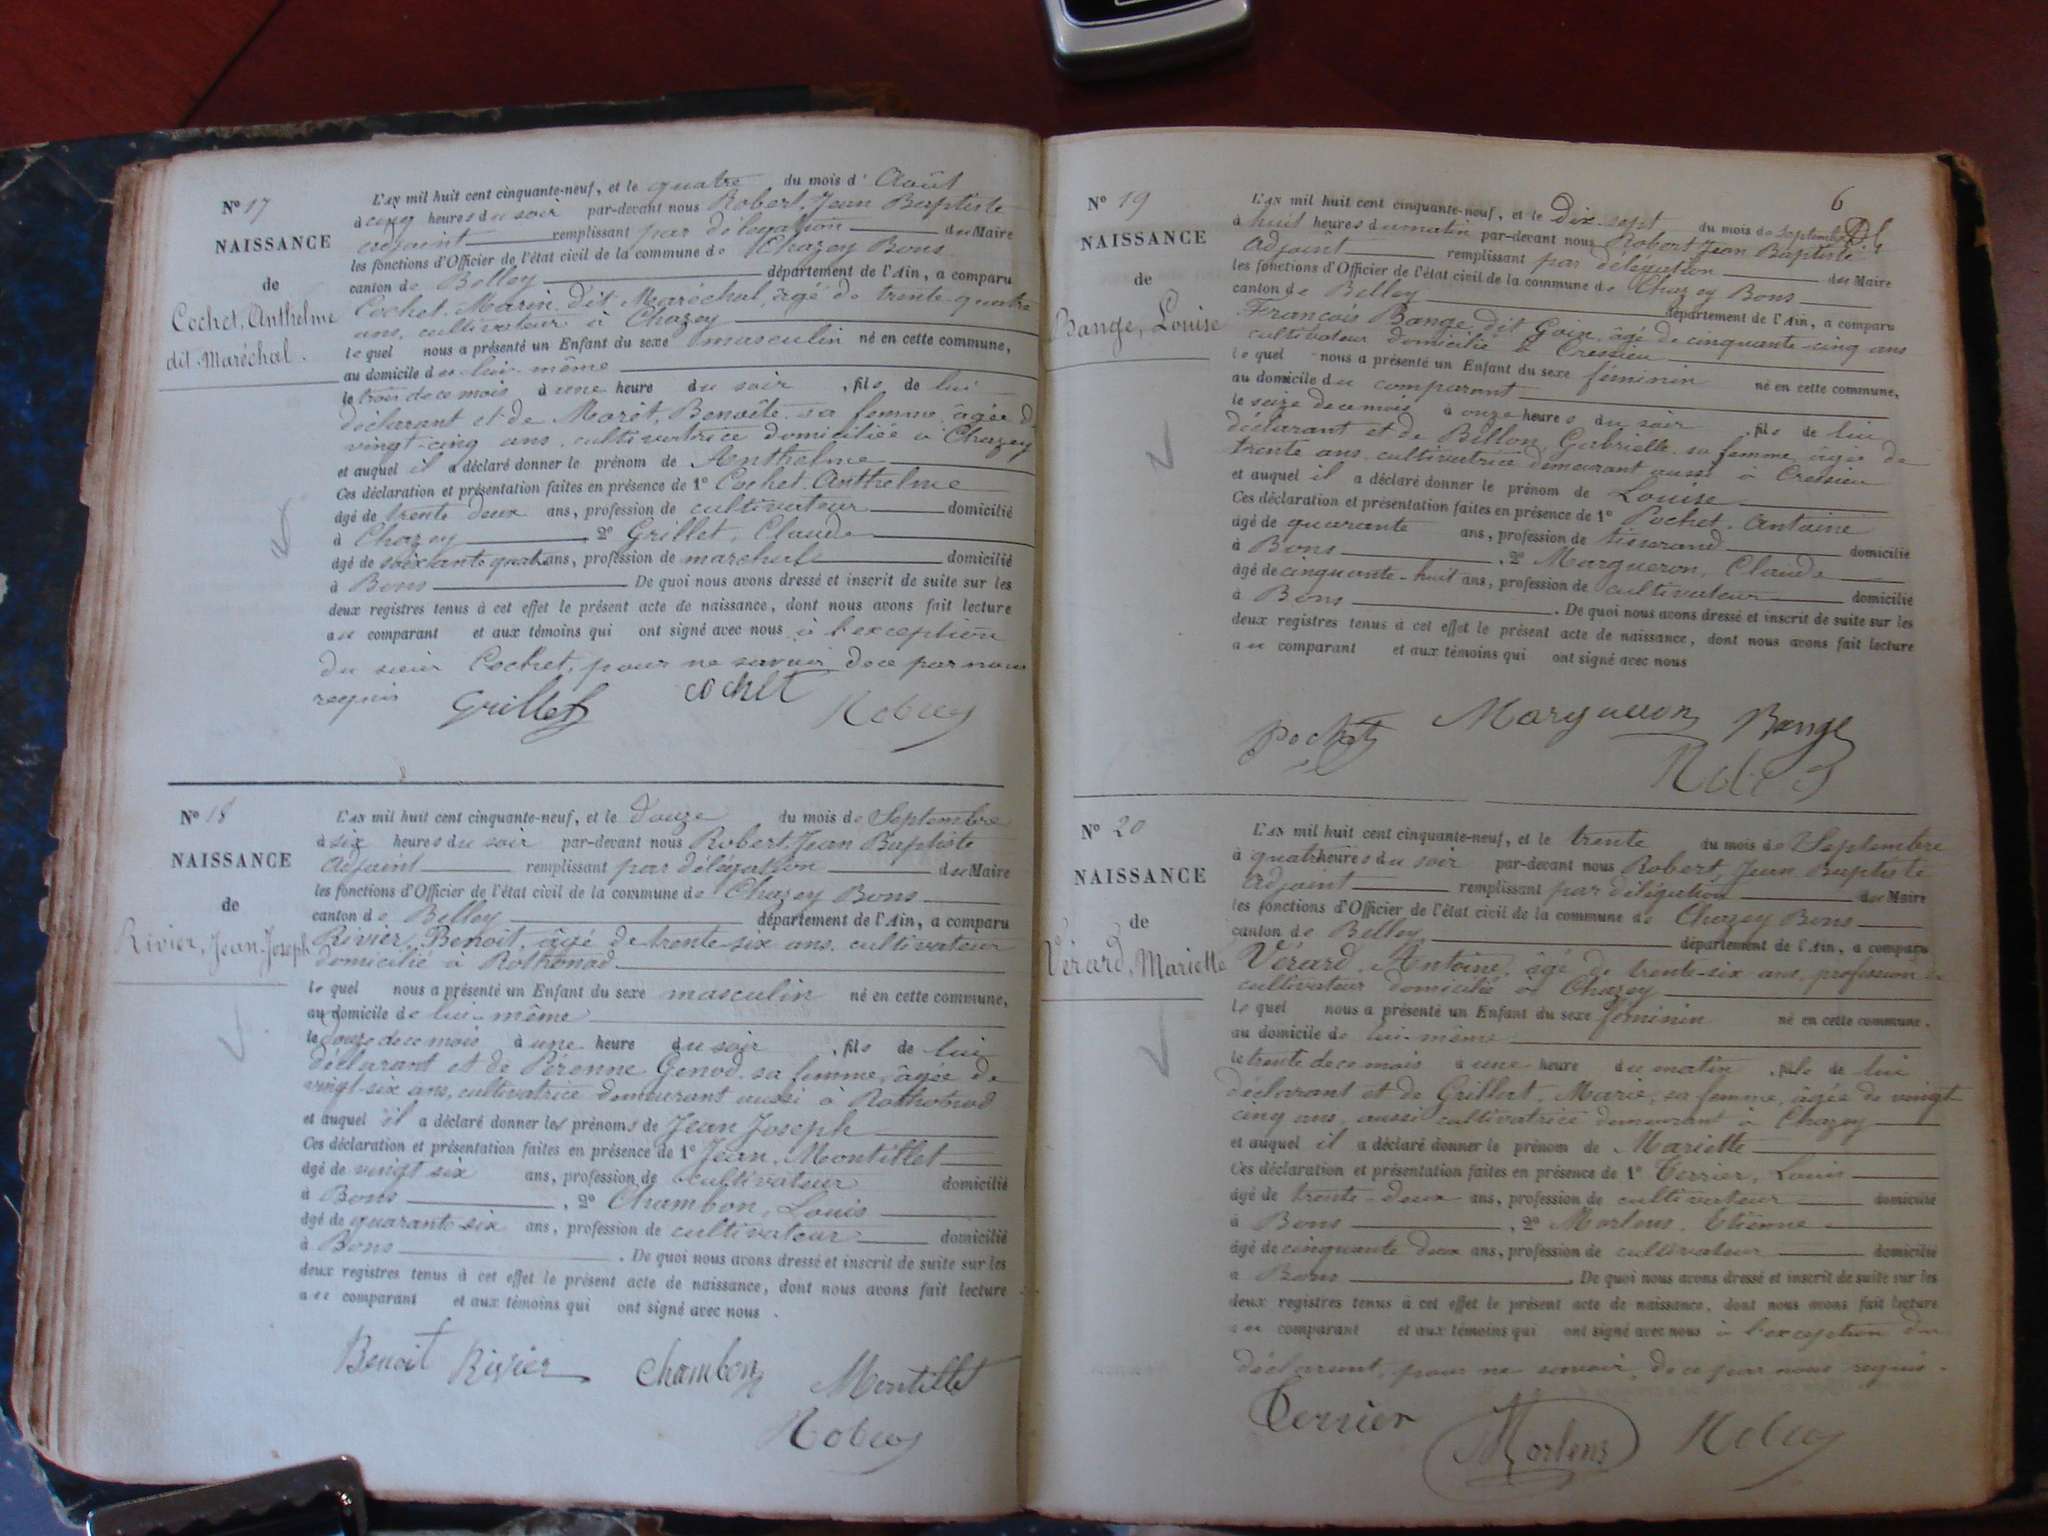 N° 17
NAISSANCE
de
Cochet, Anthelme
dit Maréchal.
L'AN mil huit cent cinquante-neuf, et le quatre du mois d' Août
à cinq heures du soir par-devant nous Robert, Jean Baptiste
adjoint remplissant par délégation du Maire
les fonctions d'Officier de l'état civil de la commune de Chazey Bons
canton de Belley département de l'Ain, a comparu
Cochet, Marin dit Maréchal, âgé de trente-quatre
ans, cultivateur à Chazey
lequel nous a présenté un Enfant du sexe masculin né en cette commune,
au domicile de lui-même
le trois de ce mois à une heure du soir, fils de lui
déclarant et de Moret, Benoîte sa femme, âgée de
vingt-cinq ans, cultivatrice domiciliée à Chazey
et auquel il a déclaré donner le prénom de Anthelme
Ces déclaration et présentation faites en présence de 1° Cochet, Anthelme
âgé de trente deux ans, profession de cultivateur domicilié
à Chazey, 2° Grillet, Claude
âgé de soixante quatre ans, profession de maréchal domicilié
à Bons De quoi nous avons dressé et inscrit de suite sur les
deux registres tenus à cet effet le présent acte de naissance, dont nous avons fait lecture
au comparant et aux témoins qui ont signé avec nous à l'exception
du sieur Cochet, pour ne savoir de ce par nous
requis
Grillet cochet Robert
N° 18
NAISSANCE
de
Rivier, Jean-Joseph
L'AN mil huit cent cinquante-neuf, et le Douze du mois de Septembre
à six heures du soir par-devant nous Robert, Jean Baptiste
adjoint remplissant par délégation du Maire
les fonctions d'Officier de l'état civil de la commune de Chazey Bons
canton de Belley département de l'Ain, a comparu
Rivier, Benoit, âgé de trente-six ans, cultivateur
domicilié à Rothonod
lequel nous a présenté un Enfant du sexe masculin né en cette commune,
au domicile de lui-même
le Douze de ce mois à une heure du soir, fils de lui
déclarant et de Pérenne Genod sa femme, âgée de
vingt-six ans, cultivatrice demeurant aussi à Rothonod
et auquel il a déclaré donner les prénoms de Jean Joseph
Ces déclaration et présentation faites en présence de 1° Jean, Montillet
âgé de vingt six ans, profession de cultivateur domicilié
à Bons, 2° Chambon, Louis
âgé de quarante-six ans, profession de cultivateur domicilié
à Bons. De quoi nous avons dressé et inscrit de suite sur les
deux registres tenus à cet effet le présent acte de naissance, dont nous avons fait lecture
au comparant et aux témoins qui ont signé avec nous.
Benoit Rivier Chambon Montillet
Robert
6
N° 19
NAISSANCE
de
Bange, Louise
L'AN mil huit cent cinquante-neuf, et le Dix-sept du mois de Septembre
à huit heures du matin par-devant nous Robert Jean Baptiste
Adjoint remplissant par délégation du Maire
les fonctions d'Officier de l'état civil de la commune de Chazey Bons
canton de Belley département de l'Ain, a comparu
François Bange dit Goin, âgé de cinquante-cinq ans
cultivateur domicilié à Cressieu
lequel nous a présenté un Enfant du sexe féminin né en cette commune,
au domicile du comparant
le seize de ce mois à onze heures du soir, fils de lui
déclarant et de Billon, Gabrielle, sa femme, âgée de
trente ans, cultivatrice demeurant aussi à Cressieu
et auquel il a déclaré donner le prénom de Louise
Ces déclaration et présentation faites en présence de 1° Pochet, Antoine
âgé de quarante ans, profession de tisserand domicilié
à Bons, 2° Margueron, Claude
âgé de cinquante-huit ans, profession de cultivateur domicilié
à Bons. De quoi nous avons dressé et inscrit de suite sur les
deux registres tenus à cet effet le présent acte de naissance, dont nous avons fait lecture
au comparant et aux témoins qui ont signé avec nous
Pochet Margueron Bange
Robert
N° 20
NAISSANCE
de
Vérard, Mariette
L'AN mil huit cent cinquante-neuf, et le trente du mois de Septembre
à quatre heures du soir par-devant nous Robert, Jean Baptiste
adjoint remplissant par délégation du Maire
les fonctions d'Officier de l'état civil de la commune de Chazey Bons
canton de Belley département de l'Ain, a comparu
Vérard, Antoine, âgé de trente-six ans, profession de
cultivateur domicilié à Chazey
lequel nous a présenté un Enfant du sexe féminin né en cette commune,
au domicile de lui-même
le trente de ce mois à une heure du matin, fils de lui
déclarant et de Grillert, Marie, sa femme, âgée de vingt
cinq ans, aussi cultivatrice demeurant à Chazey
et auquel il a déclaré donner le prénom de Mariette
Ces déclaration et présentation faites en présence de 1° Terrier, Louis
âgé de trente-deux ans, profession de cultivateur domicilié
à Bons, 2° Mortens, Etienne
âgé de cinquante deux ans, profession de cultivateur domicilié
à Bons. De quoi nous avons dressé et inscrit de suite sur les
deux registres tenus à cet effet le présent acte de naissance, dont nous avons fait lecture
au comparant et aux témoins qui ont signé avec nous à l'exception du
déclarant, pour ne savoir, de ce par nous requis.
Terrier Mortens Robert